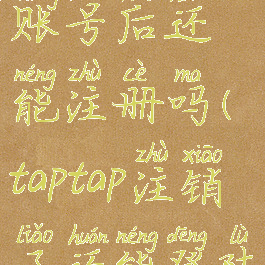 账号后还
néng zhù cè ma
能注册吗(
zhù xiāo
taptap注销
liǎo huán néng dēng lù
了还能登陆